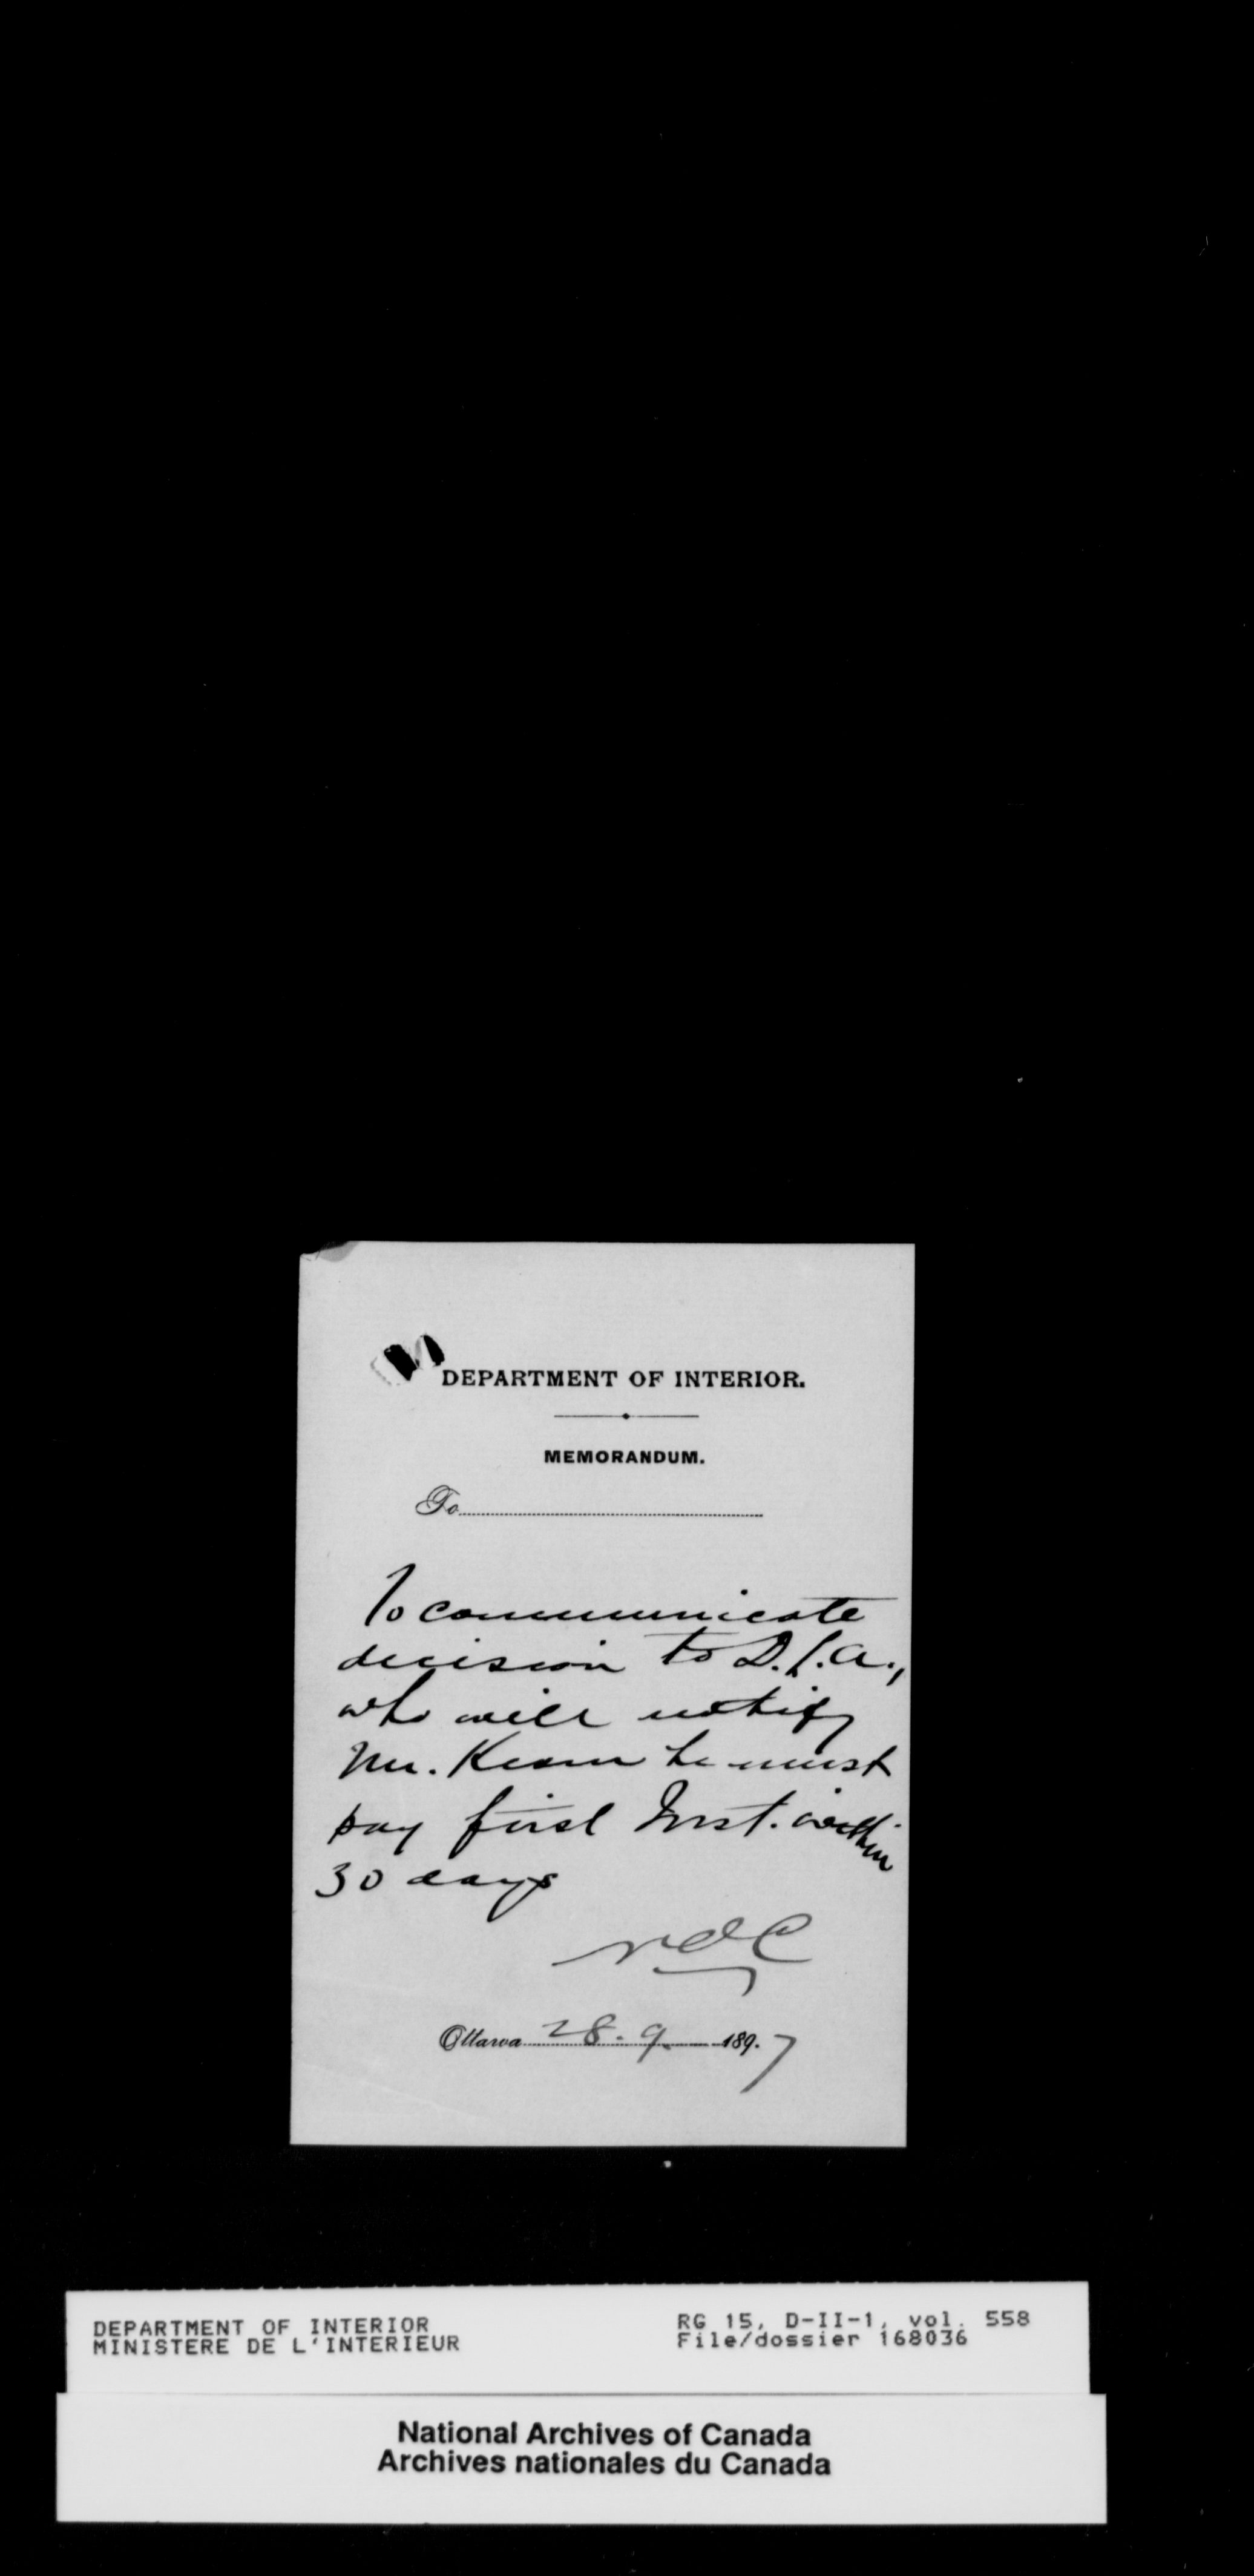 DEPARTMENT OF INTERIOR.
MEMORANDUM.
To
To communicate
decision to D.L.A.,
who will notify
Mr. Keam he must
pay first Inst. within
30 days
Ottawa 28.9. 189.7
DEPARTMENT OF INTERIOR
MINISTERE DE L'INTERIEUR
RG 15, D-II-1, vol. 558
File/dossier 168036
National Archives of Canada
Archives nationales du Canada